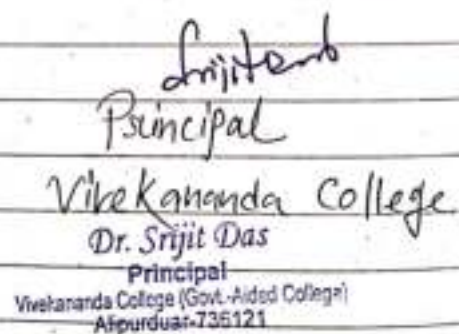 Principal
Vivekananda College
Dr. Srijit Das
Principal
Vivekananda College (Govt.-Aided College)
Alipurduar-736121